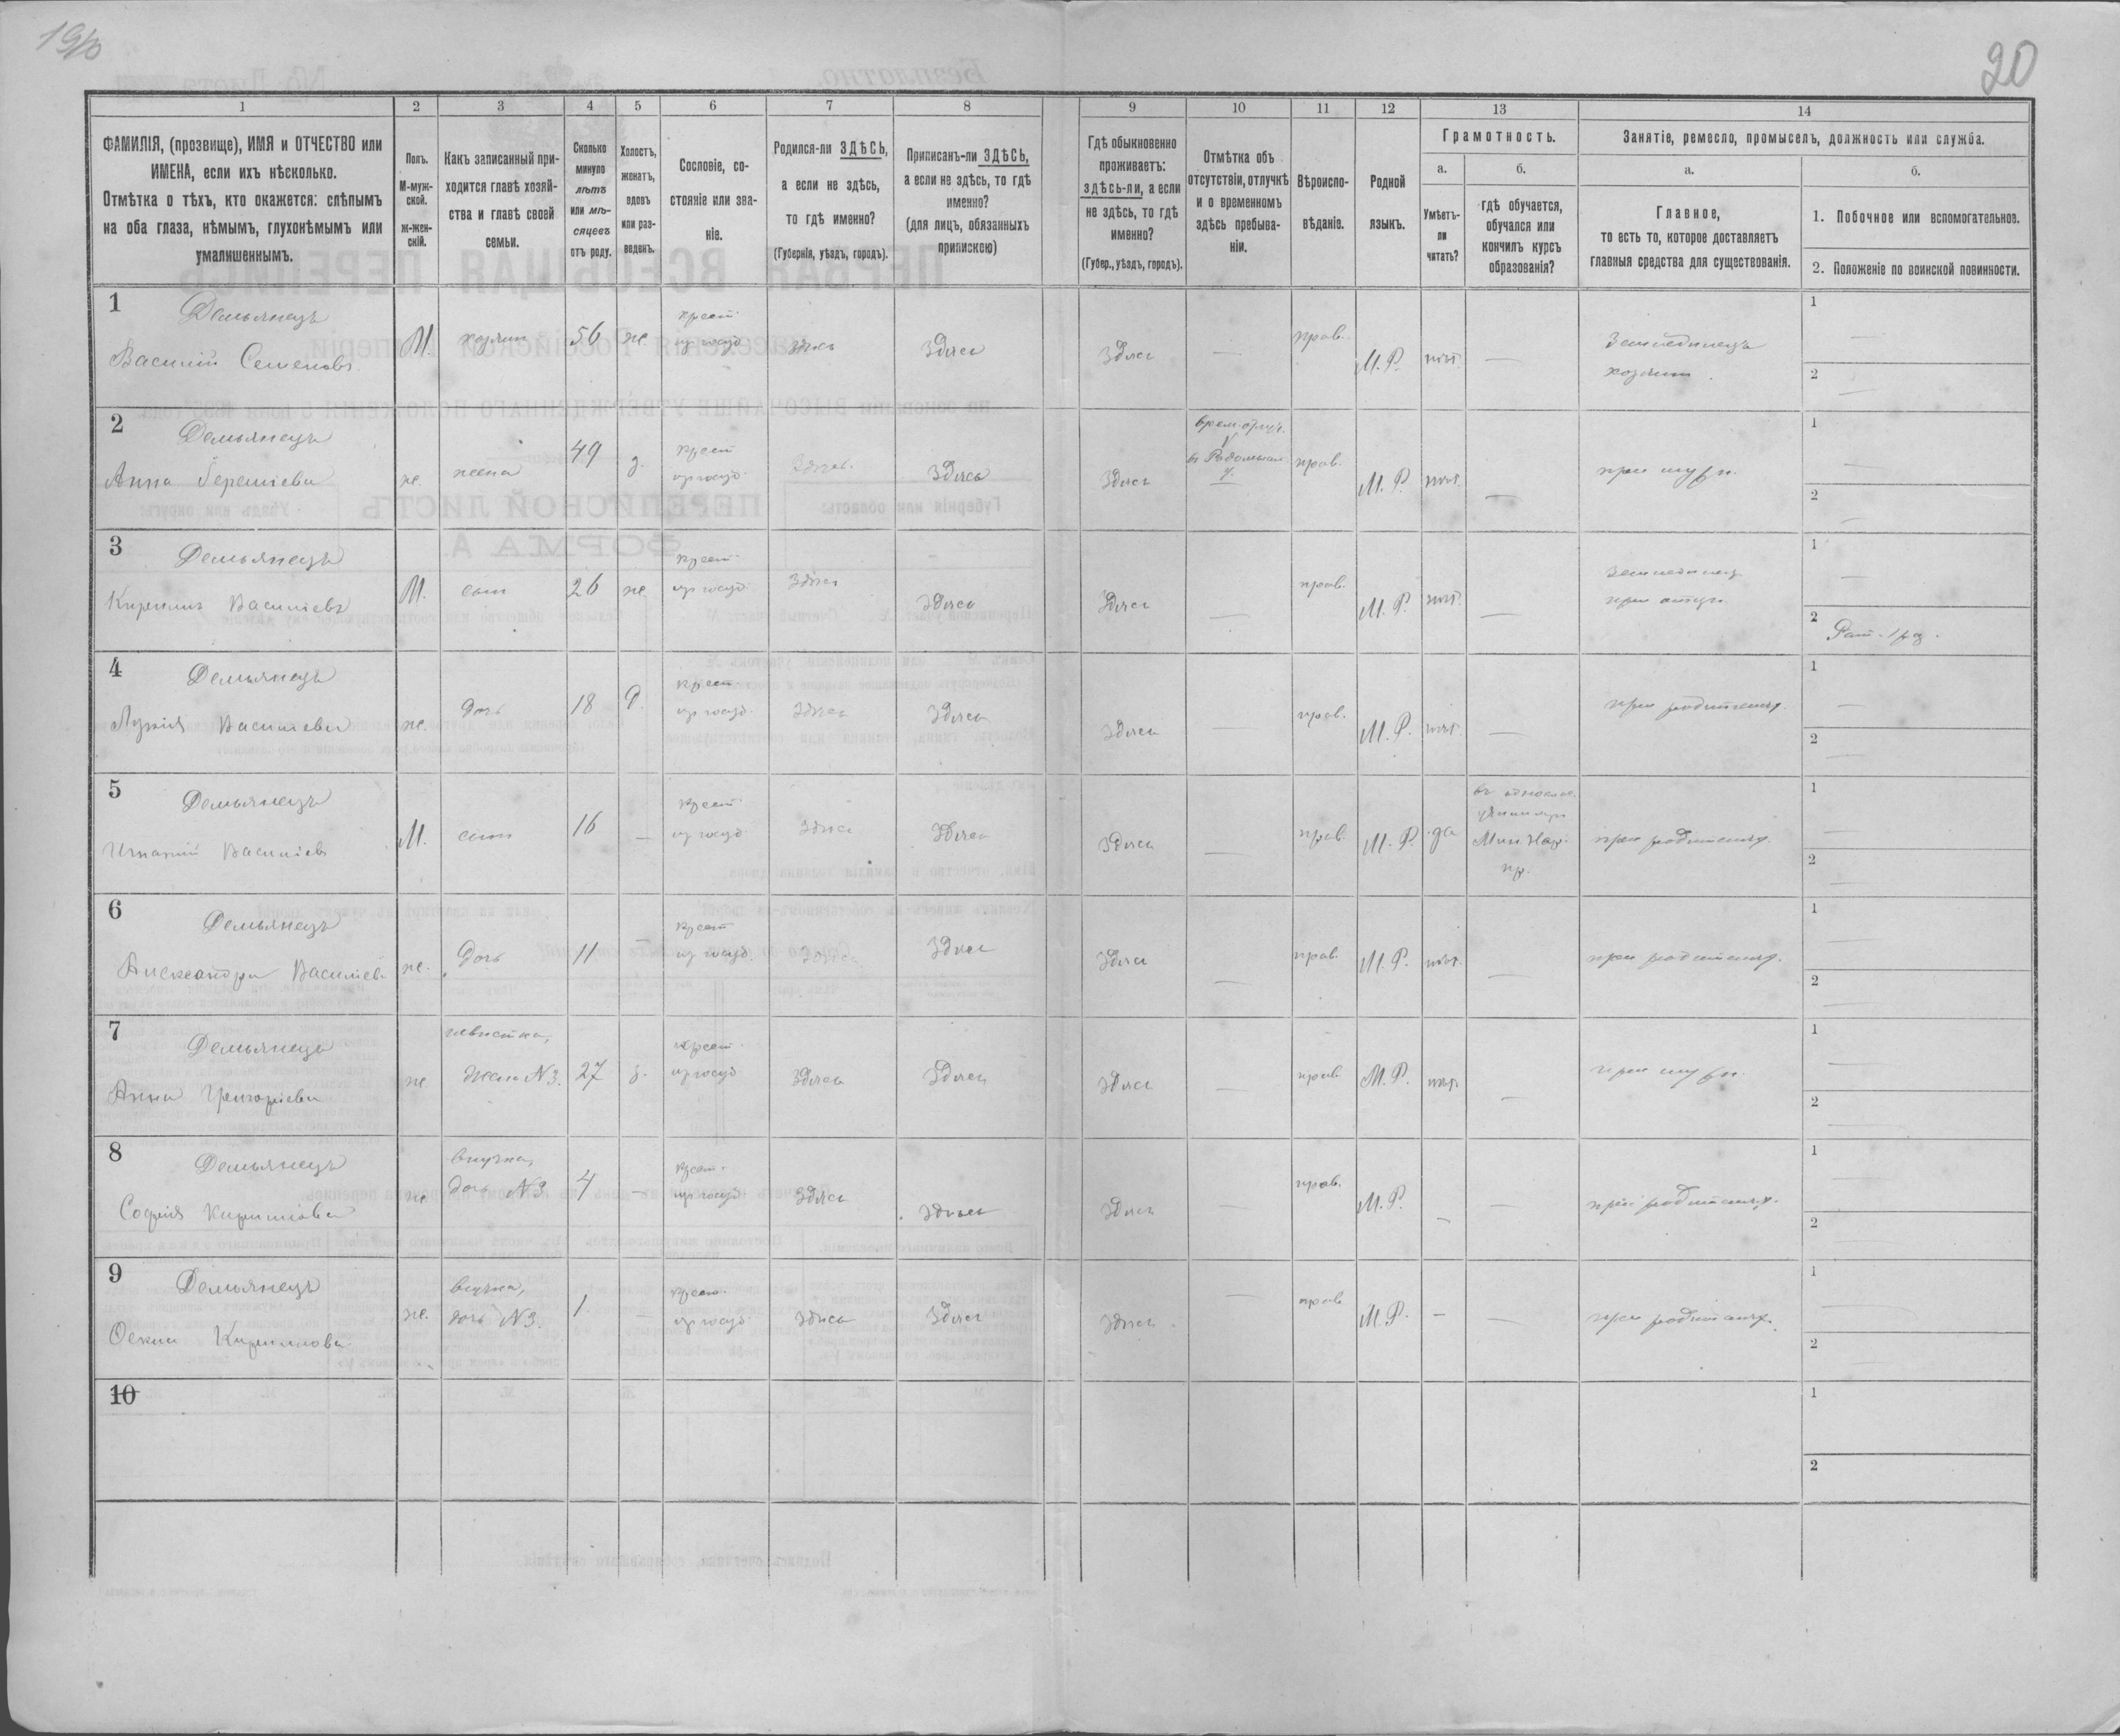 20
1 2 3 4 5 6 7 8 9 10 11 12 13 14
ФАМИЛІЯ, (прозвище), ИМЯ и ОТЧЕСТВО или
ИМЕНА, если ихъ нѣсколько.
Отмѣтка о тѣхъ, кто окажется: слѣпымъ
на оба глаза, нѣмымъ, глухонѣмымъ или
умалишеннымъ.
Полъ.
М-муж-
ской.
Ж-жен-
скій.
Какъ записанный при-
ходится главѣ хозяй-
ства и главѣ своей
семьи.
Сколько
минуло
лѣтъ
или мѣ-
сяцевъ
отъ роду.
Холостъ,
женатъ,
вдовъ
или раз-
веденъ.
Сословіе, со-
стояніе или зва-
ніе.
Родился-ли ЗДѢСЬ,
а если не здѣсь,
то гдѣ именно?
(Губернія, уѣздъ, городъ).
Приписанъ-ли ЗДѢСЬ,
а если не здѣсь, то гдѣ
именно?
(для лицъ, обязанныхъ
припискою)
Гдѣ обыкновенно
проживаетъ:
здѣсь-ли, а если
не здѣсь, то гдѣ
именно?
(Губер., уѣздъ, городъ).
Отмѣтка объ
отсутствіи, отлучкѣ
и о временномъ
здѣсь пребыва-
ніи.
Вѣроиспо-
вѣданіе.
Родной
языкъ.
Грамотность.
а.
Умѣетъ-
ли
читать?
б.
гдѣ обучается,
обучался или
кончилъ курсъ
образованія?
Занятіе, ремесло, промыселъ, должность или служба.
а.
Главное,
то есть то, которое доставляетъ
главныя средства для существованія.
б.
1. Побочное или вспомогательное.
2. Положеніе по воинской повинности.
1 Демьянецъ
Василій Семеновъ М. хозяин 56 ж. крест. из госуд. здѣсь здѣсь здѣсь — прав. М.Р. нѣт. — Земледѣлецъ хозяин. 1 — 2 —
2 Демьянецъ
Анна ж. жена 49 з. крест из госуд. здѣсь. здѣсь здѣсь прав. М.Р. нѣт. — при муже. 1 — 2 —
3 Демьянецъ
Кириллъ Василіевъ М. сын 26 ж крест. из госуд. здѣсь здѣсь здѣсь — прав. М.Р. нѣт. — земледѣлец при отце. 1 — 2 Рат. 1 раз.
4 Демьянецъ
Василіева ж. дочь 18 д. крест. из госуд. здѣсь здѣсь здѣсь — прав. М.Р. нѣт — при родителях. 1 — 2 —
5 Демьянецъ
Игнатій Василіев М. сын 16 — крест. из госуд. здѣсь здѣсь здѣсь — прав. М.Р. да Мин. Нар. пр. при родителях. 1 — 2 —
6 Демьянецъ
Александра Василіева ж. дочь 11 — крест из госуд. здѣсь здѣсь здѣсь — прав. М.Р. нѣт. — при родителях. 1 — 2 —
7 Демьянецъ
Анна Григоріева ж невѣстка, жена N3. 27 з. крест. из госуд здѣсь здѣсь здѣсь — прав. М.Р. нѣт. — при муже. 1 — 2 —
8 Демьянецъ
Софія Кирилова ж внучка, дочь N3 4 — крест. из госуд здѣсь здѣсь здѣсь — прав. М.Р. — — при родителях. 1 — 2 —
9 Демьянецъ
Кирилова ж. внучка, дочь N3. 1 — крест. из госуд здѣсь здѣсь здѣсь — прав М.Р. — — при родителях. 1 — 2 —
10 1 2